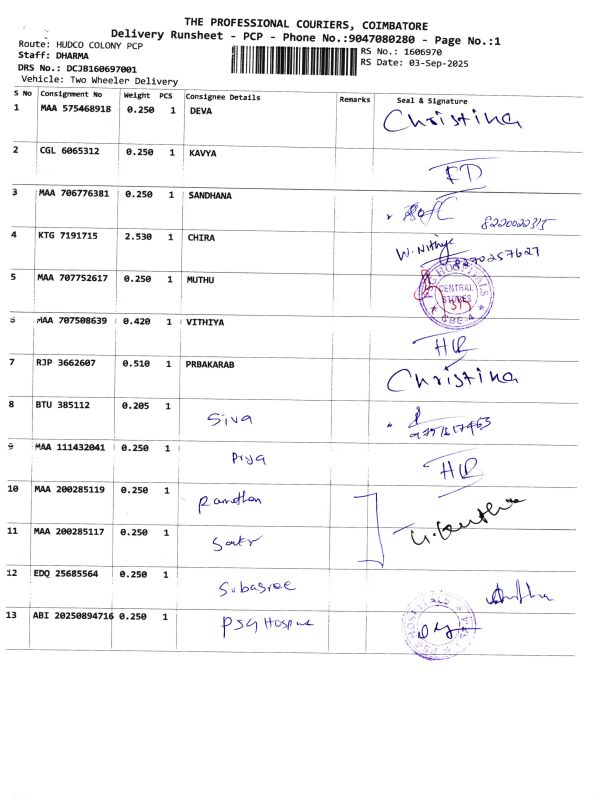 THE PROFESSIONAL COURIERS, COIMBATORE
Delivery Runsheet - PCP - Phone No.:9047080280 - Page No.:1
Route: HUDCO COLONY PCP
RS No.: 1606970
Staff: DHARMA
RS Date: 03-Sep-2025
DRS No.: DCJB160697001
Vehicle: Two Wheeler Delivery
S No Consignment No Weight PCS Consignee Details Remarks Seal & Signature
1 MAA 575468918 0.250 1 DEVA Christina
2 CGL 6065312 0.250 1 KAVYA
3 MAA 706776381 0.250 1 SANDHANA 8220022315
4 KTG 7191715 2.530 1 CHIRA W. Nithya 8270257627
5 MAA 707752617 0.250 1 MUTHU HOSPITALS CENTRAL STORES CBE-4
6 MAA 707508639 0.420 1 VITHIYA
7 RJP 3662607 0.510 1 PRBAKARAB Christina
8 BTU 385112 0.205 1 Siva
9 MAA 111432041 0.250 1 Priya
10 MAA 200285119 0.250 1
11 MAA 200285117 0.250 1
12 EDQ 25685564 0.250 1 Subasree
13 ABI 20250894716 0.250 1 PSG HOSPITAL